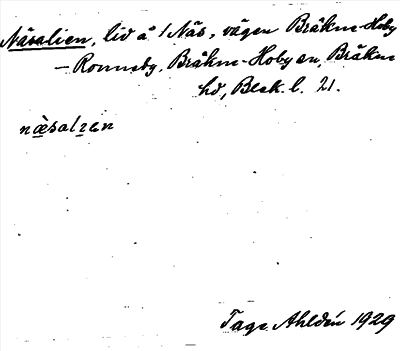 Näsalien, lid å 1 Näs, vägen Bräkne-Hoby
– Ronneby. Bräkne-Hoby sn, Bräkne
hd, Blek. l. 21.
næsalɩen
Tage Ahldén 1929